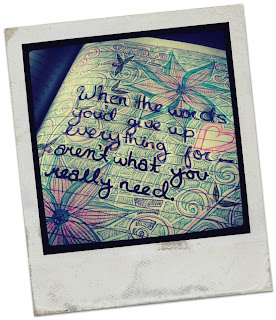 When the words
you'd give up
everything for
aren't what you
really need.